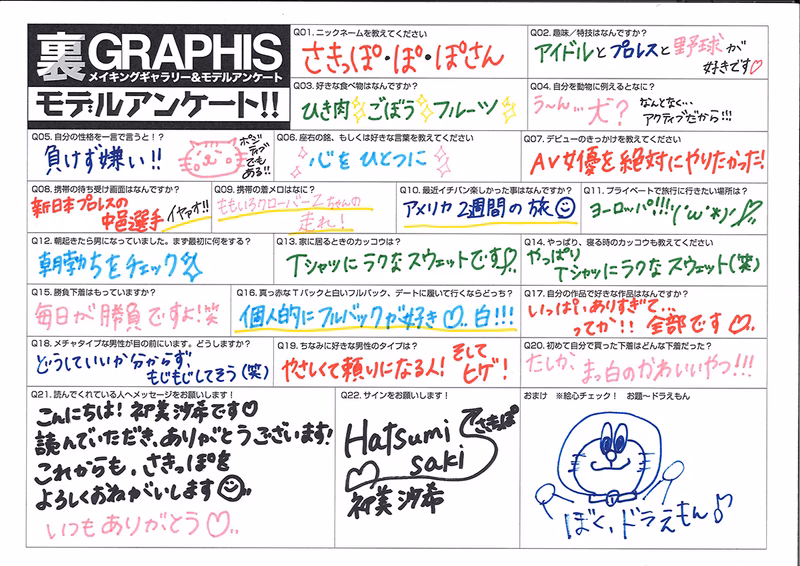 裏GRAPHIS
メイキングギャラリー&モデルアンケート
モデルアンケート!!
Q01. ニックネームを教えてください
さきっぽ・ぽ・ぽさん
Q02. 趣味/特技はなんですか?
アイドルとプロレスと野球が
好きです♡
Q03. 好きな食べ物はなんですか?
ひき肉 ごぼう フルーツ
Q04. 自分を動物に例えるとなに?
う〜ん…犬?
なんとなく…
アクティブだから!!!
Q05. 自分の性格を一言で言うと!?
負けず嫌い!!
ポジ
ティブ
でも
ある!!
Q06. 座右の銘、もしくは好きな言葉を教えてください
心をひとつに
Q07. デビューのきっかけを教えてください
AV女優を絶対にやりたかった!
Q08. 携帯の待ち受け画面はなんですか?
新日本プロレスの
中邑選手 イヤァオ!!
Q09. 携帯の着メロはなに?
ももいろクローバーZちゃんの
走れ!
Q10. 最近イチバン楽しかった事はなんですか?
アメリカ2週間の旅
Q11. プライベートで旅行に行きたい場所は?
ヨーロッパ!!!!
Q12. 朝起きたら男になっていました。まず最初に何をする?
朝勃ちをチェック
Q13. 家に居るときのカッコウは?
Tシャツにラクなスウェットです♡
Q14. やっぱり、寝る時のカッコウも教えてください
やっぱり
Tシャツにラクなスウェット(笑)
Q15. 勝負下着はもっていますか?
毎日が勝負ですよ!笑
Q16. 真っ赤なTバックと白いフルバック、デートに履いて行くならどっち?
個人的にフルバックが好き♡.. 白!!!
Q17. 自分の作品で好きな作品はなんですか?
いっぱいありすぎて…
ってか!! 全部です♡..
Q18. メチャタイプな男性が目の前にいます。どうしますか?
どうしていいか分からず、
もじもじしてそう(笑)
Q19. ちなみに好きな男性のタイプは?
やさしくて頼りになる人! そして
ヒゲ!
Q20. 初めて自分で買った下着はどんな下着だった?
たしか、
まっ白のかわいいやつ!!!
Q21. 読んでくれている人へメッセージをお願いします!
こんにちは! 初美沙希です♡
読んでいただき、ありがとうございます!
これからも、さきっぽを
よろしくおねがいします
いつもありがとう♡..
Q22. サインをお願いします!
Hatsumi
saki
さきっぽ
初美沙希
おまけ ※絵心チェック! お題〜ドラえもん
ぼく、ドラえもん♪